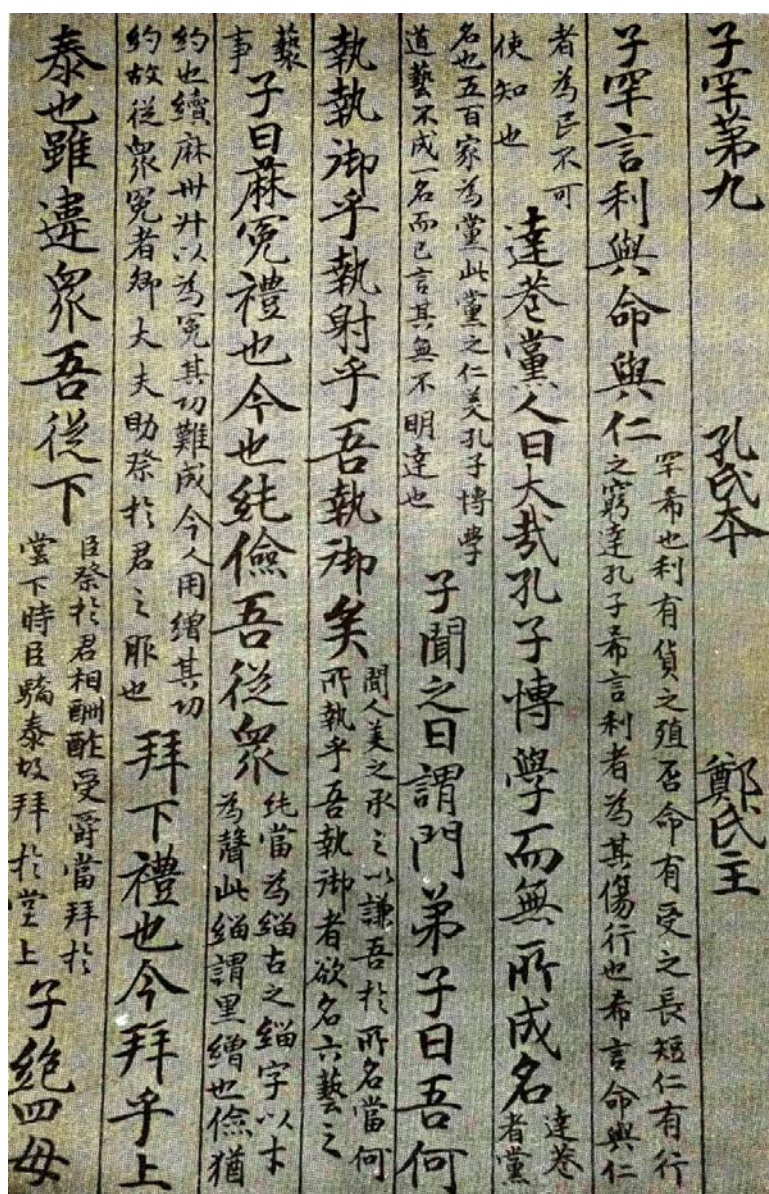 子罕第九 孔氏本 鄭氏主
子罕言利與命與仁
罕希也利有貨之殖否命有受之長短仁有行
之窮達孔子希言利者為其傷行也希言命與仁
者為民不可
使知也
達巷黨人曰大哉孔子博學而無所成名
達巷
者黨
名也五百家為黨此黨之仁美孔子博學
道藝不成一名而已言其無不明達也
子聞之曰謂門弟子曰吾何
執執御乎執射乎吾執御矣
聞人美之承之以謙吾於所名當何
所執乎吾執御者欲名六藝之
藝
事
子曰麻冕禮也今也純儉吾從眾
純當為緇古之緇字以才
為聲此緇謂黑繒也儉猶
約也績麻卅升以為冕其功難成今人用繒其功
約故從眾冕者卿大夫助祭於君之服也
拜下禮也今拜乎上
泰也雖違眾吾從下
臣祭於君相酬酢受爵當拜於
堂下時臣驕泰故拜於堂上
子絕四毋